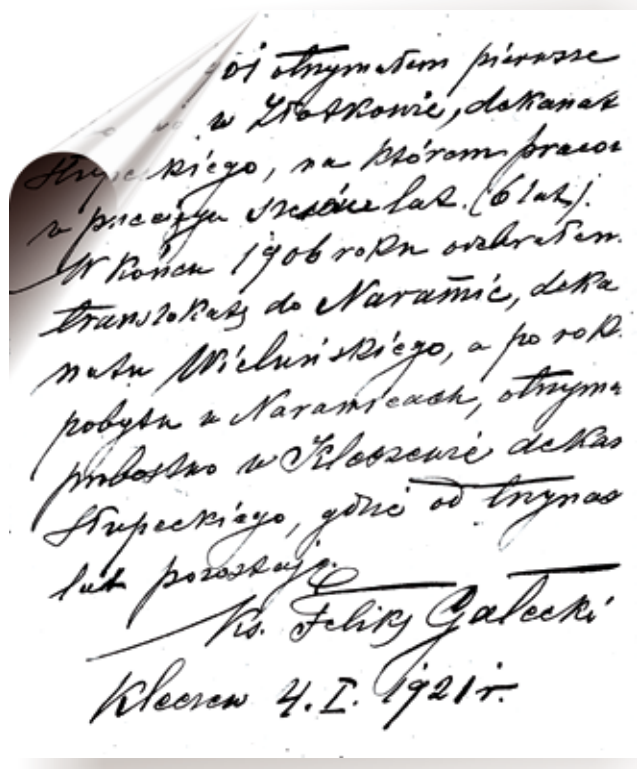 otrzymałem pierwsze
w Złotkowie, dekanat
Słupeckiego, na którem praco
w przeciągu sześciu lat. (6 lat).
W końcu 1906 roku odebrałem
translokatę do Naramic, deka
natu Wieluńskiego, a po rok
pobytu w Naramicach, otrzyma
probostwo w Kleczewie dekan
Słupeckiego, gdzie od trzynas
lat pozostaję.
Ks. Feliks Gałecki
Kleczew 4. I. 1921 r.